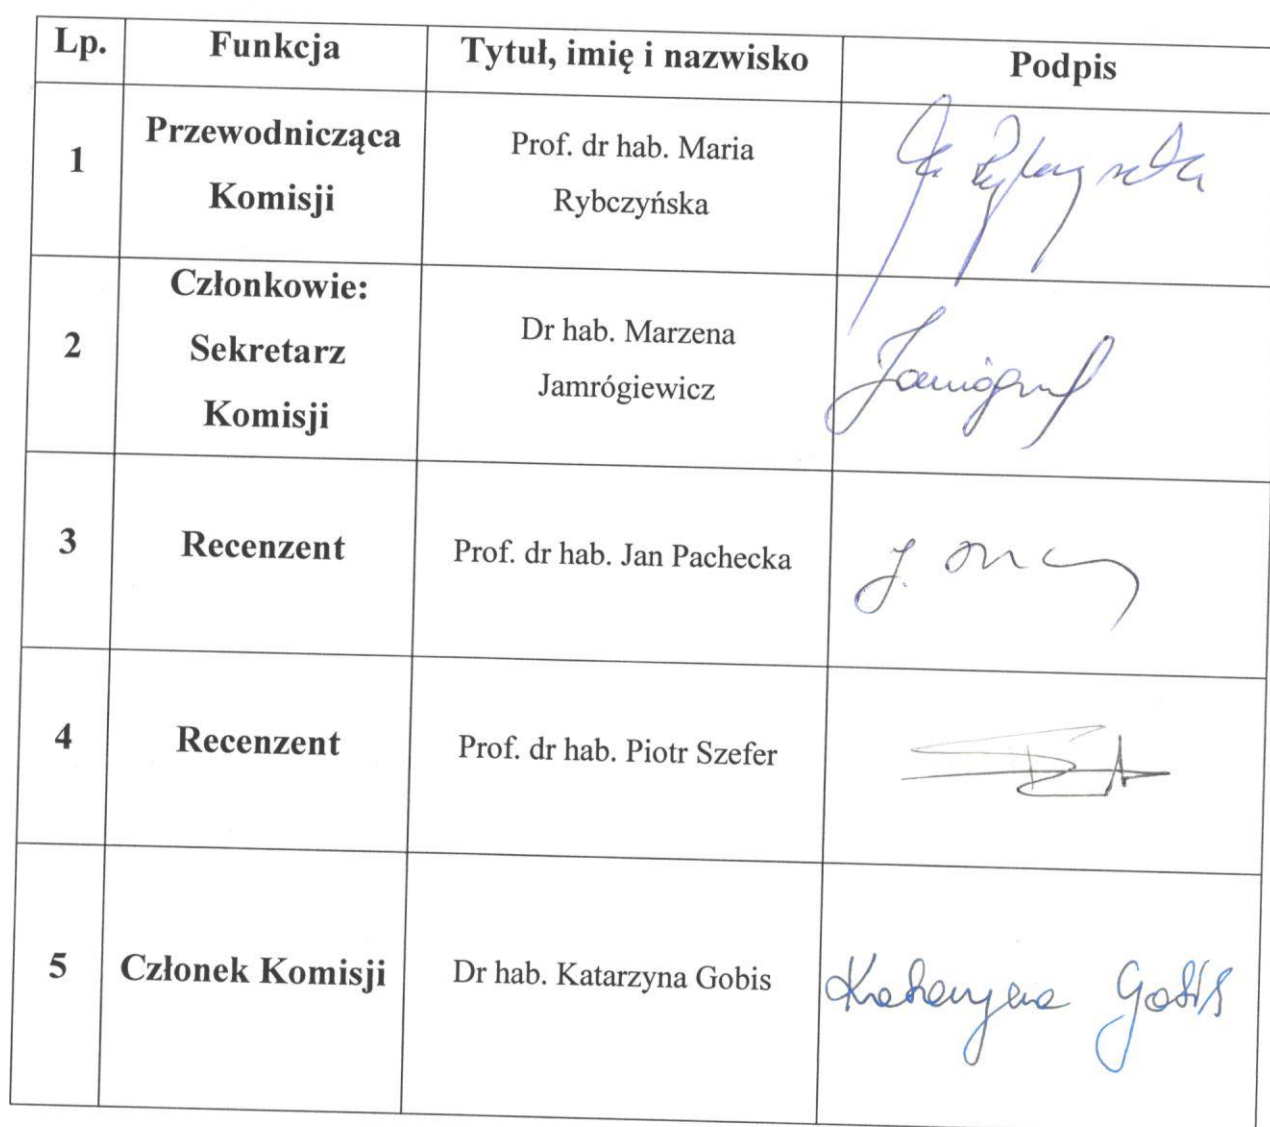 Lp. Funkcja Tytuł, imię i nazwisko Podpis
1
Przewodnicząca
Komisji
Prof. dr hab. Maria
Rybczyńska
2
Członkowie:
Sekretarz
Komisji
Dr hab. Marzena
Jamrógiewicz
3 Recenzent Prof. dr hab. Jan Pachecka
4 Recenzent Prof. dr hab. Piotr Szefer
5 Członek Komisji Dr hab. Katarzyna Gobis Katarzyna Gobis